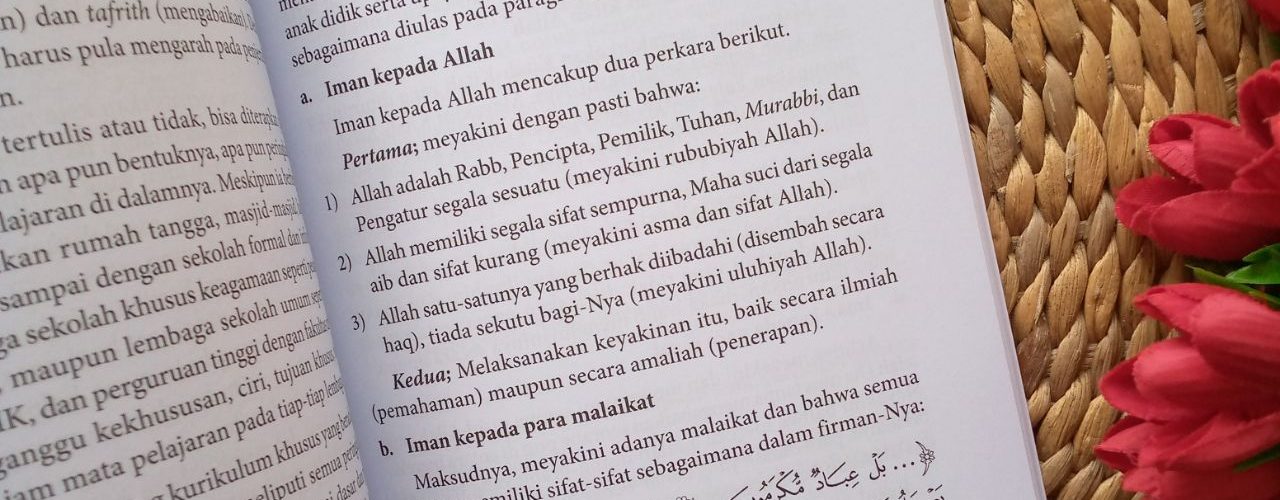 n) dan tafrith (mengabaikan).
harus pula mengarah pada
n.
tertulis atau tidak, bisa diterapkan
n apa pun bentuknya, apa pun
lajaran di dalamnya. Meskipun
kan rumah tangga, masjid-masjid,
sampai dengan sekolah formal dan
ga sekolah khusus keagamaan seperti
, maupun lembaga sekolah umum
IK, dan perguruan tinggi dengan
ganggu kekhususan, ciri, tujuan khusus
jam mata pelajaran pada tiap-tiap
kurikulum khusus yang
meliputi semua
anak didik serta
sebagaimana diulas pada
a. Iman kepada Allah
Iman kepada Allah mencakup dua perkara berikut.
Pertama; meyakini dengan pasti bahwa:
1) Allah adalah Rabb, Pencipta, Pemilik, Tuhan, Murabbi, dan
Pengatur segala sesuatu (meyakini rububiyah Allah).
2) Allah memiliki segala sifat sempurna, Maha suci dari segala
aib dan sifat kurang (meyakini asma dan sifat Allah).
3) Allah satu-satunya yang berhak diibadahi (disembah secara
haq), tiada sekutu bagi-Nya (meyakini uluhiyah Allah).
Kedua; Melaksanakan keyakinan itu, baik secara ilmiah
(pemahaman) maupun secara amaliah (penerapan).
b. Iman kepada para malaikat
Maksudnya, meyakini adanya malaikat dan bahwa semua
memiliki sifat-sifat sebagaimana dalam firman-Nya:
﴿... بَلْ عِبَادٌ مُّكْرَمُونَ